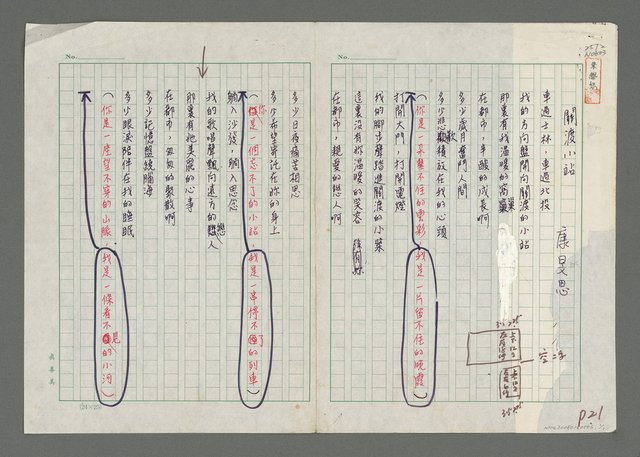 No.
No.
關渡小站
康旻思
車過士林，車過北投
我的方向盤開向關渡的小站
那裏有我溫暖的窩巢
在都市，辛酸的成長啊
多少歲月奮鬥人間
多少歡樂放在我的心頭
（你是一朵繫不住的雲彩，我是一片留不住的晚霞）
打開大門，打開電燈
我的腳步聲踏進關渡的小巢
這裏沒有妳溫暖的笑容
在都市，親愛的戀人啊
多少日夜痛苦相思
多少希望寄託在妳的身上
（你是一個忘不了的小站，我是一串停不了的列車）
躺入沙發，躺入思念
我的歌唱聲飄向遠方的戀人
那裏有她美麗的心事
在都市，匆匆的聚散啊
多少記憶盤繞腦海
多少眼淚陪伴在我的睡眠
（你是一座望不穿的山脈，我是一條看不見的小河）
空
p21
(24×25)